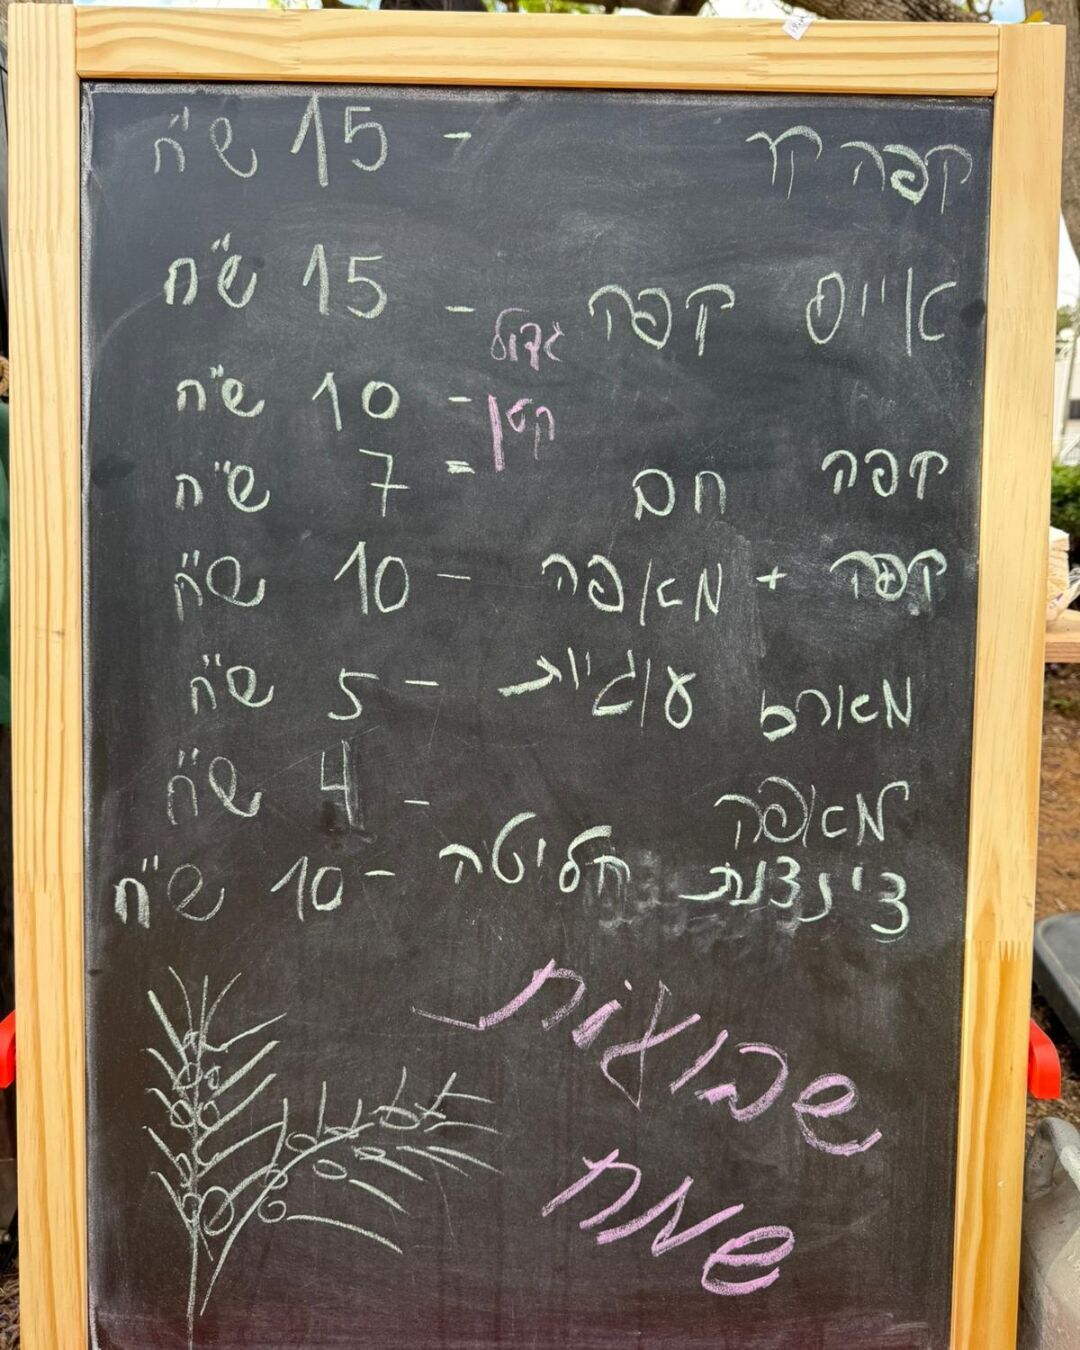 קפה קר - 15 ש"ח
אייס קפה - 15 ש"ח
גדול - 10 ש"ח
קפה חם קטן = 7 ש"ח
קפה + מאפה - 10 ש"ח
מארז עוגיות - 5 ש"ח
מאפה - 4 ש"ח
צינצנת חליטה - 10 ש"ח
שבועות
שמח